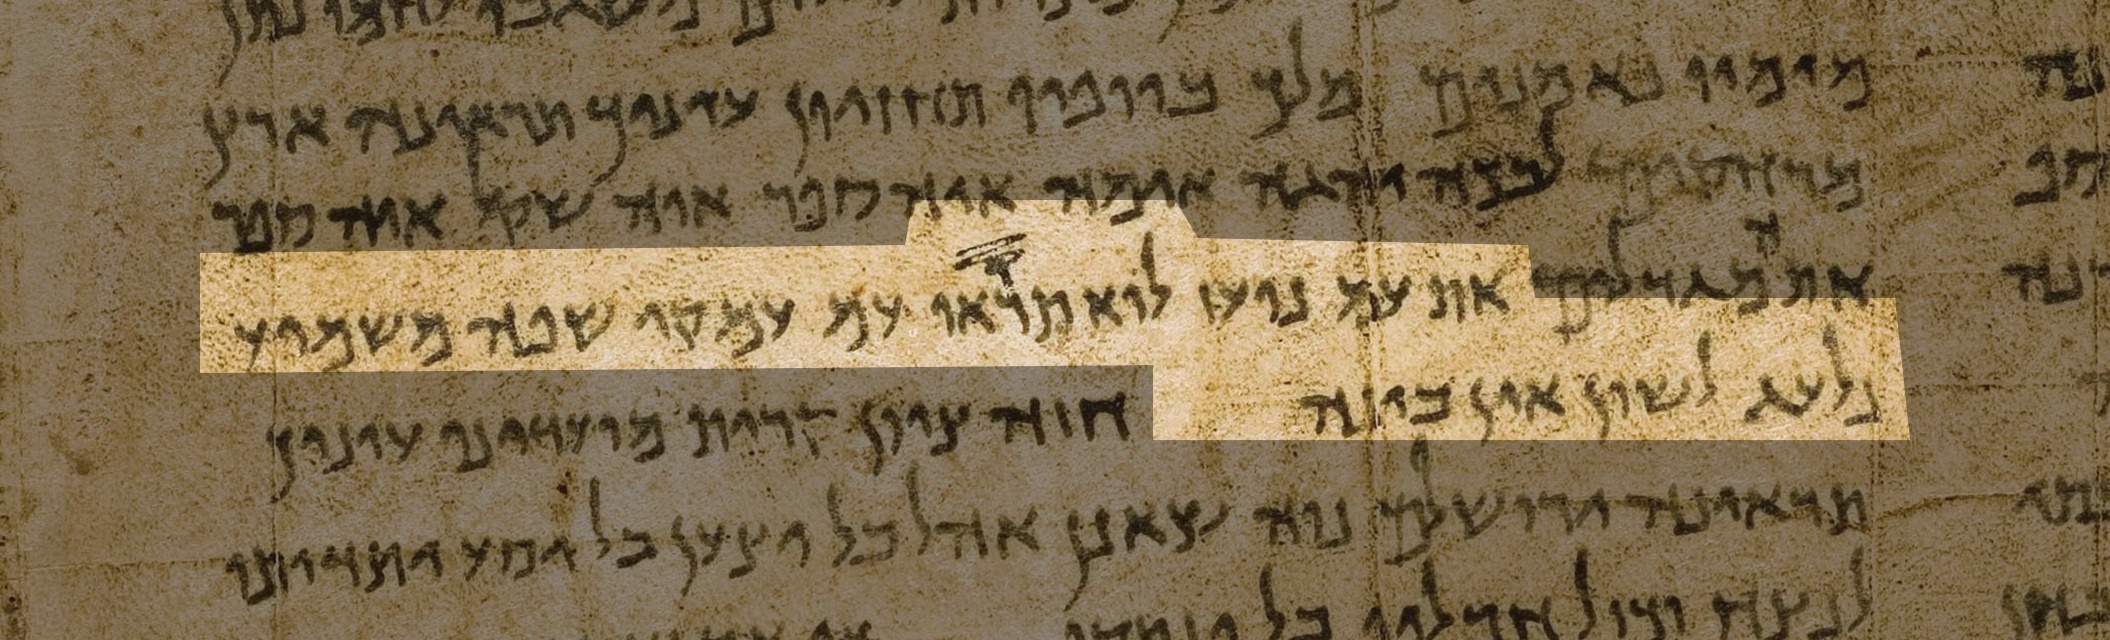 משגבו לחמו נתן
מימיו נאמנים מלך ביופיו תחזיון עיניך תראינה ארץ
מרחקים לבכה יהגה אימה איה ספר איה שקל איה ספר
את המגדלים את עם נועז לוא תראו עם עמקי שפה משמוע
נלעג לשון אין בינה חזה ציון קרית מועדינו עיניך
תראינה ירושלים נוה שאנן אהל בל יצען בל יסע יתדותיו
לנצח וכול חבליו בל ינתקו